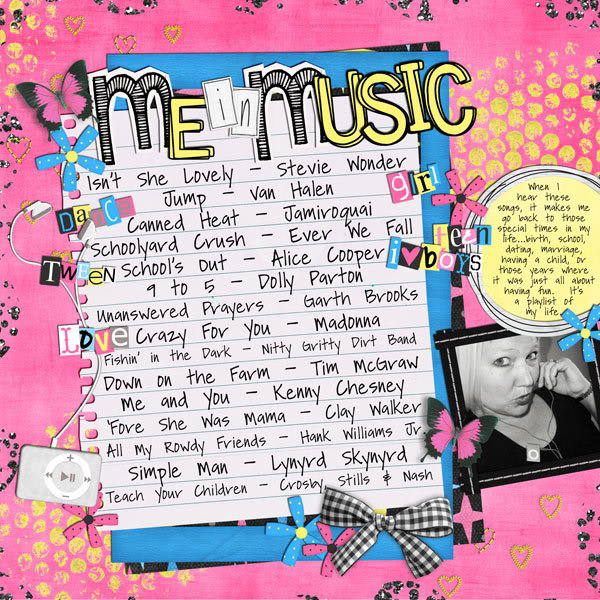 ME in MUSIC
Isn't She Lovely - Stevie Wonder
Jump - Van Halen
Canned Heat - Jamiroquai
Schoolyard Crush - Ever We Fall
School's Out - Alice Cooper
9 to 5 - Dolly Parton
Unanswered Prayers - Garth Brooks
Crazy For You - Madonna
Fishin' in the Dark - Nitty Gritty Dirt Band
Down on the Farm - Tim McGraw
Me and You - Kenny Chesney
'Fore She Was Mama - Clay Walker
All My Rowdy Friends - Hank Williams Jr.
Simple Man - Lynyrd Skynyrd
Teach Your Children - Crosby Stills & Nash
Dance
Tween
Love
girl
teen
i ♥ boys
When I
hear these
songs, it makes me
go back to those
special times in my
life...birth, school,
dating, marriage,
having a child, or
those years where
it was just all about
having fun. It's
a playlist of
my life.